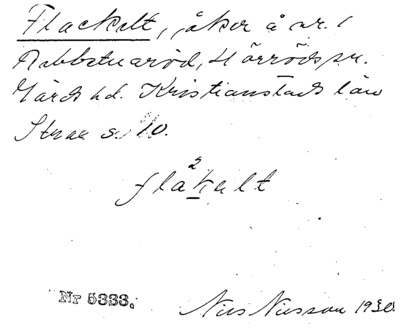 Flackelt, åker å nr. 1
Rabbetuaröd, Hörröds sn.
Gärds hd. Kristianstads län
s. 10.
2
flåkalt
Nr 5333.
Nils Nilsson 1930.